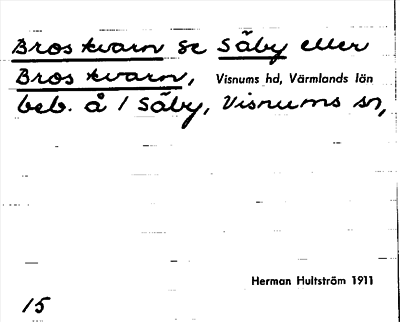 Bros kvarn se Säby eller
Bros kvarn, Visnums hd, Värmlands län
beb. å 1 Säby, Visnums sn,
Herman Hultström 1911
15